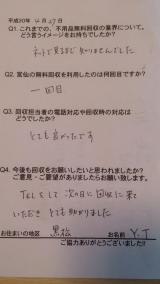 平成30年 4月27日
Q1.これまでの、不用品無料回収の業界について、
どう言うイメージをお持ちでしたか？
ネットで見るまで知りませんでした
Q2.富仙の無料回収を利用したのは何回目ですか？
一回目
Q3.回収担当者の電話対応や回収時の対応は
どうでしたか？
とても良かったです
Q4.今後も回収をお願いしたいと思われましたか？
ご意見・ご要望がありましたらお願い致します。
TELをして次の日に回収に来て
いただき とても助かりました
お住まいの地区 黒松 お名前 Y.T
ご協力ありがとうございました!!